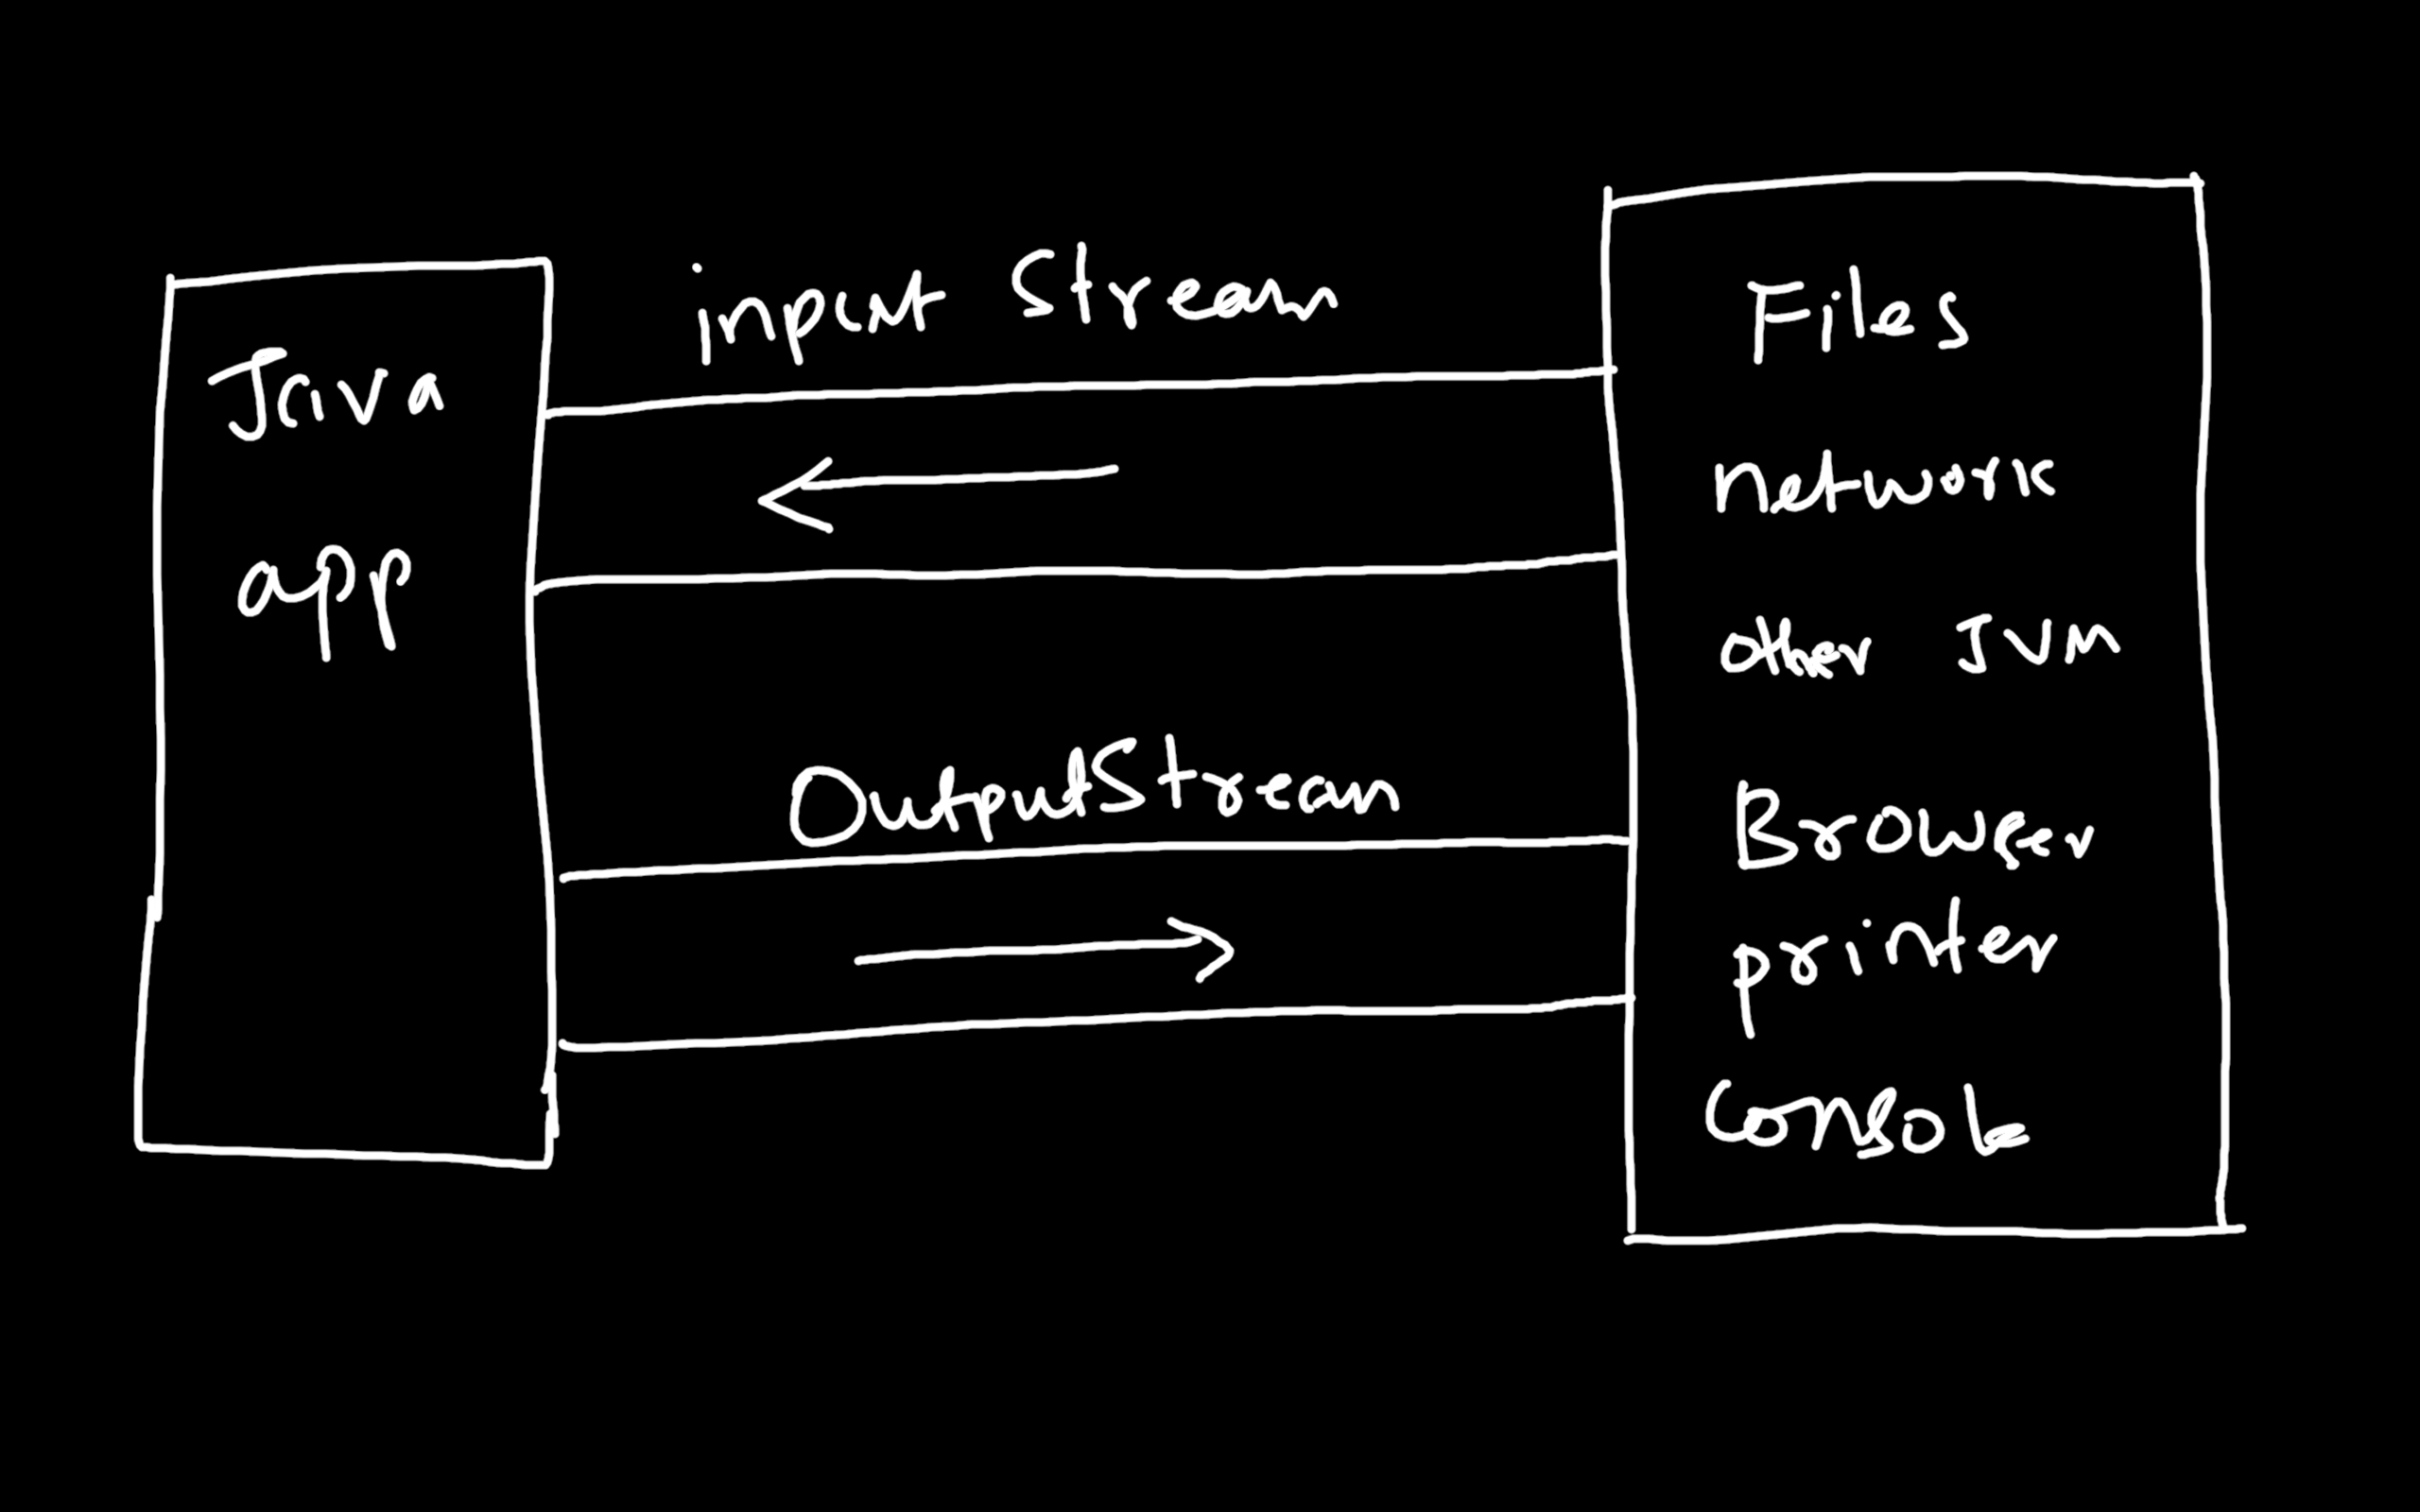 Java
app
input Stream
OutputStream
Files
network
other JVM
Browser
printer
Console